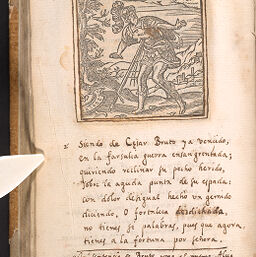 Siendo de Cesar Bruto ya vencido,
en la farsalia guerra ensangrentada;
quiriendo reclinar su pecho herido,
sobre la aguda punta de su espada:
con dolor desigual hecho un gemido
diciendo, O fortaleza desdichada,
no tienes si palabras, pues que agora
tienes a la fortuna por señora.